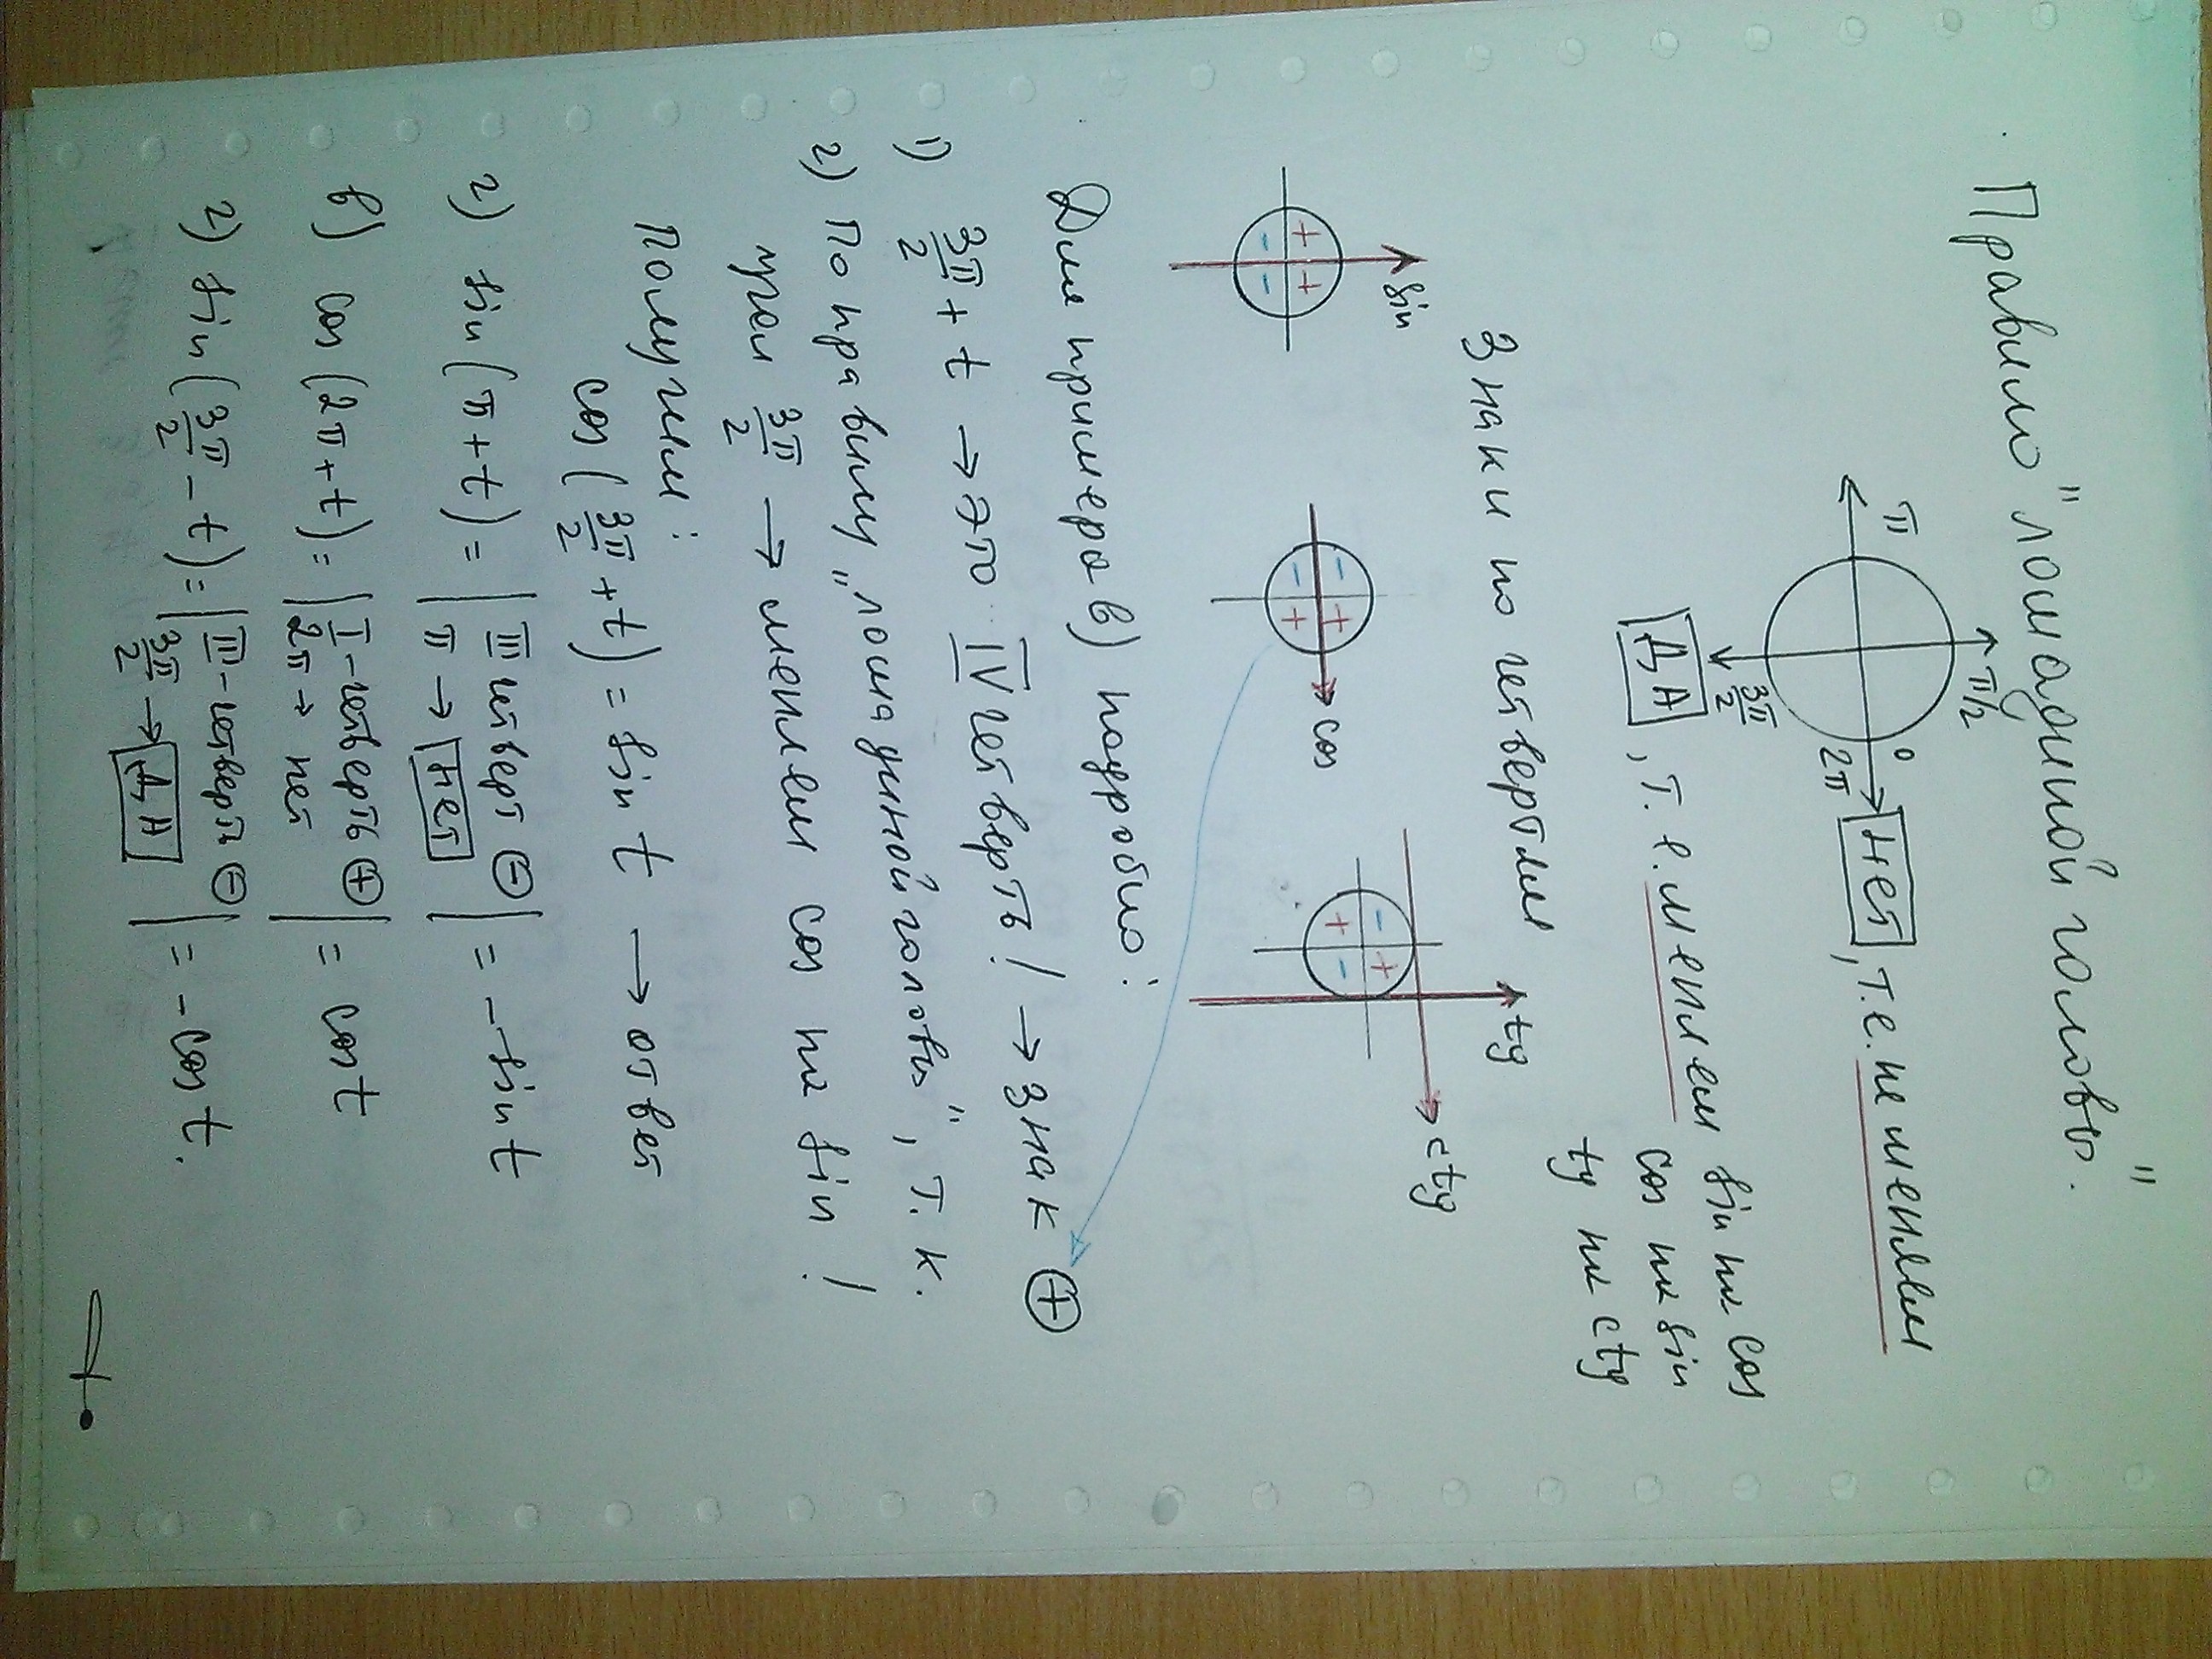 Правило "лошадиной головы."
π/2
π
0
2π
3π/2
Нет, т.е. не меняем
ДА, т.е. меняем sin на cos
cos на sin
tg на ctg
Знаки по четвертям
sin
+ +
- -
cos
- +
- +
tg
ctg
- +
+ -
Для примера в) подробно:
1) 3π/2 + t → это IV четверть! → знак ⊕
2) По правилу „лошадиной головы", т.к.
угол 3π/2 → меняем cos на sin!
Получим:
cos(3π/2 + t) = sin t → ответ
г) sin(π + t) = | III четверт ⊖ | = - sin t
π → Нет
в) cos(2π + t) = | I - четверть ⊕ | = cos t
2π → нет
г) sin(3π/2 - t) = | III - четверть ⊖ | = - cos t.
3π/2 → ДА